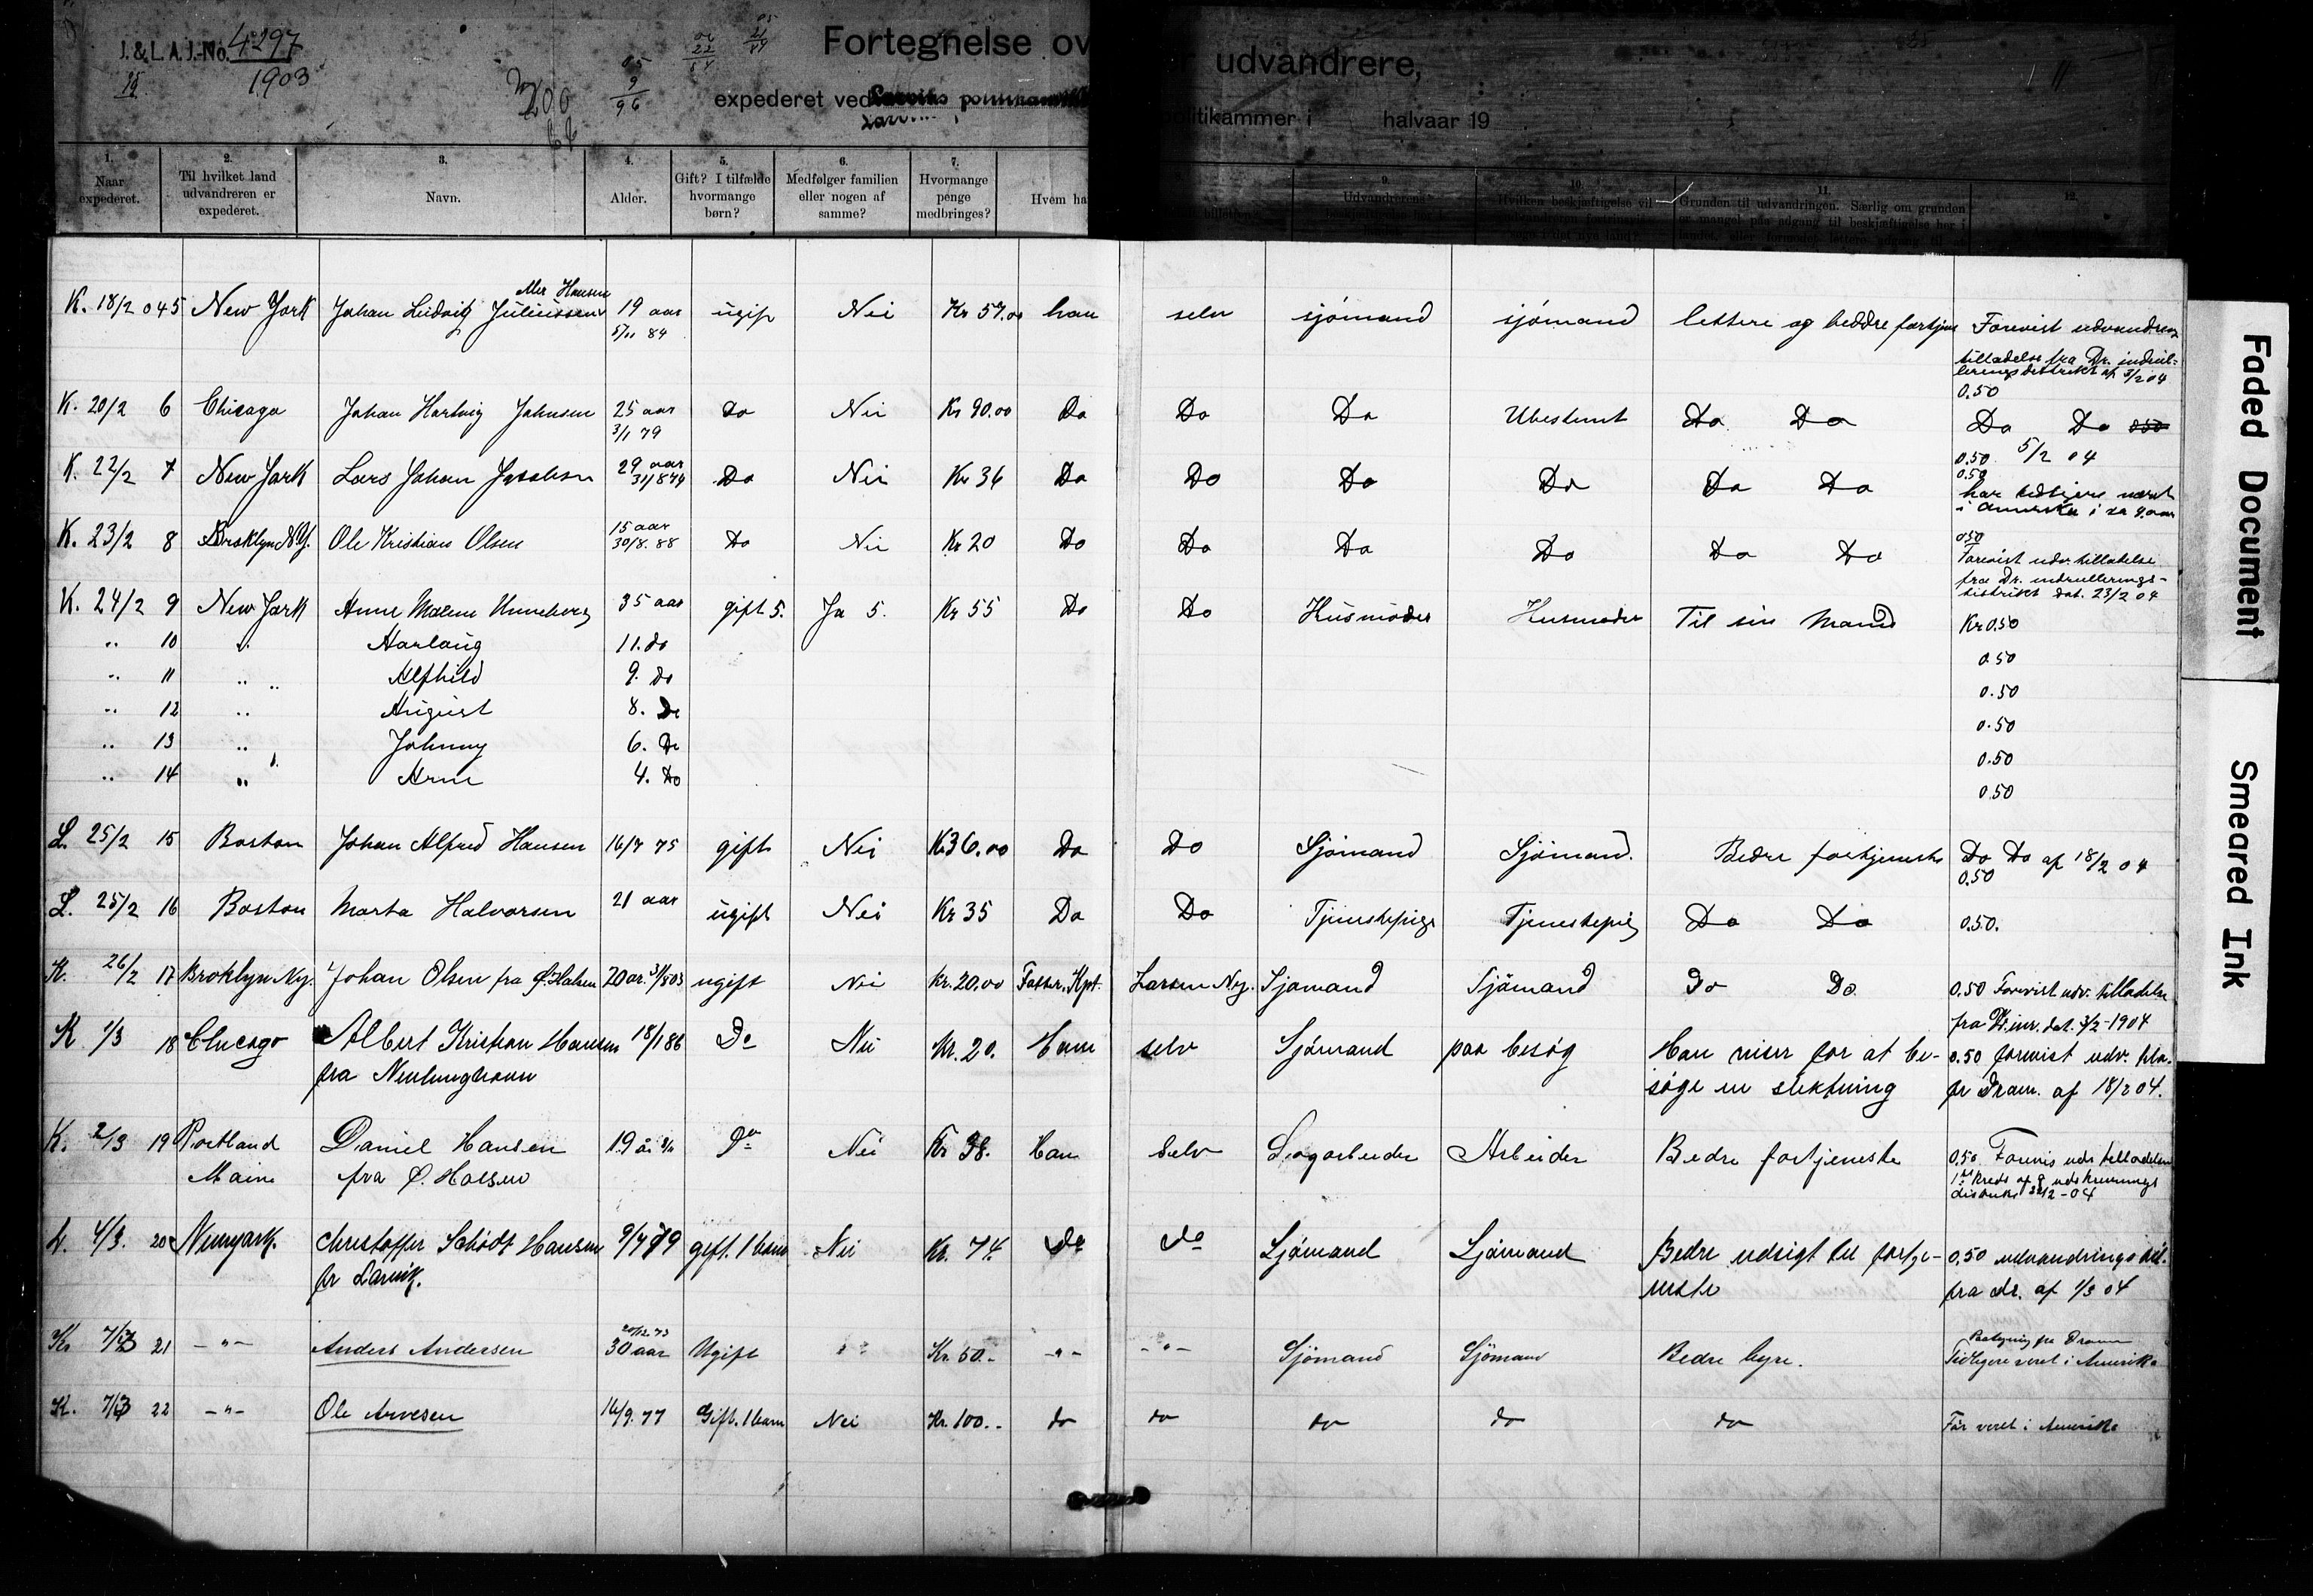 J. & L. A. J.-No. 4297
1903
200
9
96
Fortegnelse ov r udvandrere,
expederet ved
litikammer i halvaar 19
11
1. Naar expederet.
2. Til hvilket land udvandreren er expederet.
3. Navn.
4. Alder.
5. Gift? I tilfælde hvormange børn?
6. Medfølger familien eller nogen af samme?
7. Hvormange penge medbringes?
Hvem ha
9. Udvandrerens
10. Hvilken beskjæftigelse vil
11. Grunden til udvandringen. Særlig om grunden er mangel paa adgang til beskjæftigelse her i
12.
Aller Hansen
K. 18/2 04 5 New York Johan Ludvig Juliussen 19 aar ugift Nei Kr 57.00 han selv sjömand sjömand lettere og beddre fortjen Forevist udvandrings
5/11 84
tilladelse fra Dr. indrul-
leringsdistrikt af 3/2 04
0.50
K. 20/2 6 Chicago Johan Hartvig Johnsen 25 aar Do Nei Kr 90.00 Do Do Do Ubestemt Do Do Do Do
3/1 79
0.50 5/2 04
K. 22/2 7 New York Lars Johan Jacobsen 29 aar Do Nei Kr 36 Do Do Do Do Do Do 0.50
har tidligere været
i Amerika i ca 9 aar
K. 23/2 8 Broklyn N.Y. Ole Kristian Olsen 15 aar Do Nei Kr 20 Do Do Do Do Do Do 0.50
30/8. 88
Forevist udv. tilladelse
fra Dr. indrullerings-
distrikt dat. 23/2 04
K. 24/2 9 New York Anne Malene Unneberg 35 aar gift 5. Ja 5. Kr 55 Do Do Husmoder Husmoder Til sin Mand Kr 0.50
" 10 " Aarlaug 11. do 0.50
" 11 " " Alfhild 9. Do 0.50
" 12 " August 8. Do 0.50
" 13 " Johnny 6. Do 0.50
" 14 " Arne 4. Do 0.50
L. 25/2 15 Boston Johan Alfred Hansen 16/7 75 gift Nei K 36.00 Do Do Sjömand Sjömand. Bedre fortjeneste Do Do af 18/2 04
0.50
L. 25/2 16 Boston Marta Halvorsen 21 aar ugift Nei Kr 35 Do Do Tjenestepige Tjenestepig Do Do 0.50.
K. 26/2 17 Broklyn Ny. Johan Olsen fra Ø. Halsen 20 ar. ugift Nei Kr. 20.00 Fatter. Kpt. Larsen Ny. Sjömand Sjömand Do Do 0.50 Forevist udv. tilladelse
fra Dr. inr. dat. 3/2-1904
K 1/3 18 Chicago Albert Kristian Hansen 18/1 86 Do Nei Kr. 20. Ham selv Sjömand paa besøg Han reiser for at be- 0.50 forevist udv. tila.
fra Nevlunghavn søge en slektning fr Dram. af 18/2 04.
K. 2/3 19 Portland Daniel Hansen 19 å Do Nei Kr 38. Han Selv Sagarbeider Arbeider Bedre fortjeneste 0.50 Forevis udv tilladelse
Maine fra Ø. Halsen 1ste kreds af 9 udskrivnings
distrikt 22/2-04
L. 4/3. 20 Newyork. Christoffer Schödt Hansen 9/7 79 gift. 1 barn Nei Kr. 74 Do Do Sjömand Sjömand Bedre udsigt til fortje- 0,50 udvandrings till.
fr Larvik. neste fra dr. af 1/3 04
K 7/3 21 -"- Anders Andersen 30 aar Ugift Kr. 50.- -"- -"- Sjömand Sjömand Bedre hyre. Tidligere veret i Amerika
K. 7/3 22 -"- Ole Arvesen 14/9. 77 Gift. 1 barn Nei Kr. 100.- do do do do do Før veret i Amerika
Faded Document
Smeared Ink